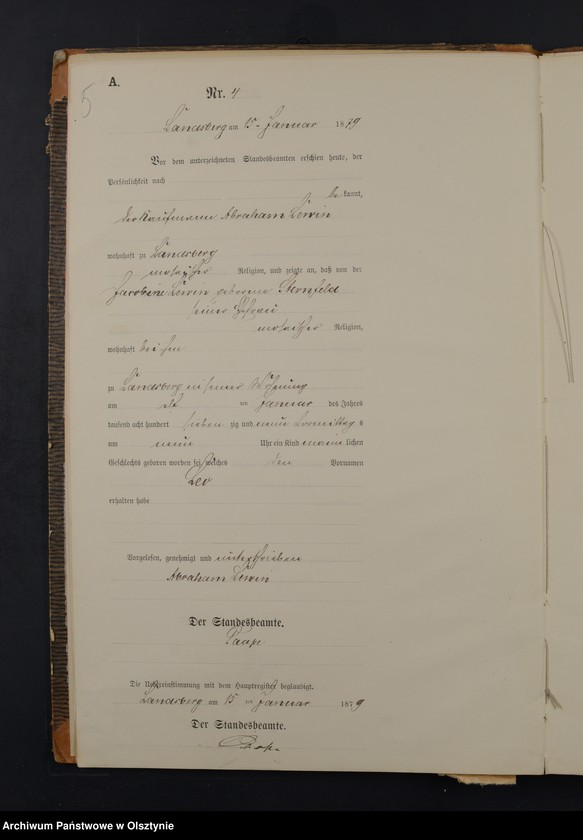 A.
5
Nr. 4
Landsberg am 15ten Januar 1879
Vor dem unterzeichneten Standesbeamten erschien heute, der
Persönlichkeit nach
be kannt,
der Kaufmann Abraham Lewin
wohnhaft zu Landsberg
mosaischer Religion, und zeigte an, daß von der
Jacobine Lewin geborene Sternfeld
seiner Ehefrau
mosaischer Religion,
wohnhaft bei ihm
zu Landsberg in seiner Wohnung
am ten Januar des Jahres
tausend acht hundert sieben zig und neun Vormittag s
um neun Uhr ein Kind männ lichen
Geschlechts geboren worden sei, welches den Vornamen
Leo
erhalten habe
Vorgelesen, genehmigt und unterschrieben
Abraham Lewin
Der Standesbeamte.
Die Uebereinstimmung mit dem Hauptregister beglaubigt.
Landsberg am 15 ten Januar 1879
Der Standesbeamte.
Archiwum Państwowe w Olsztynie